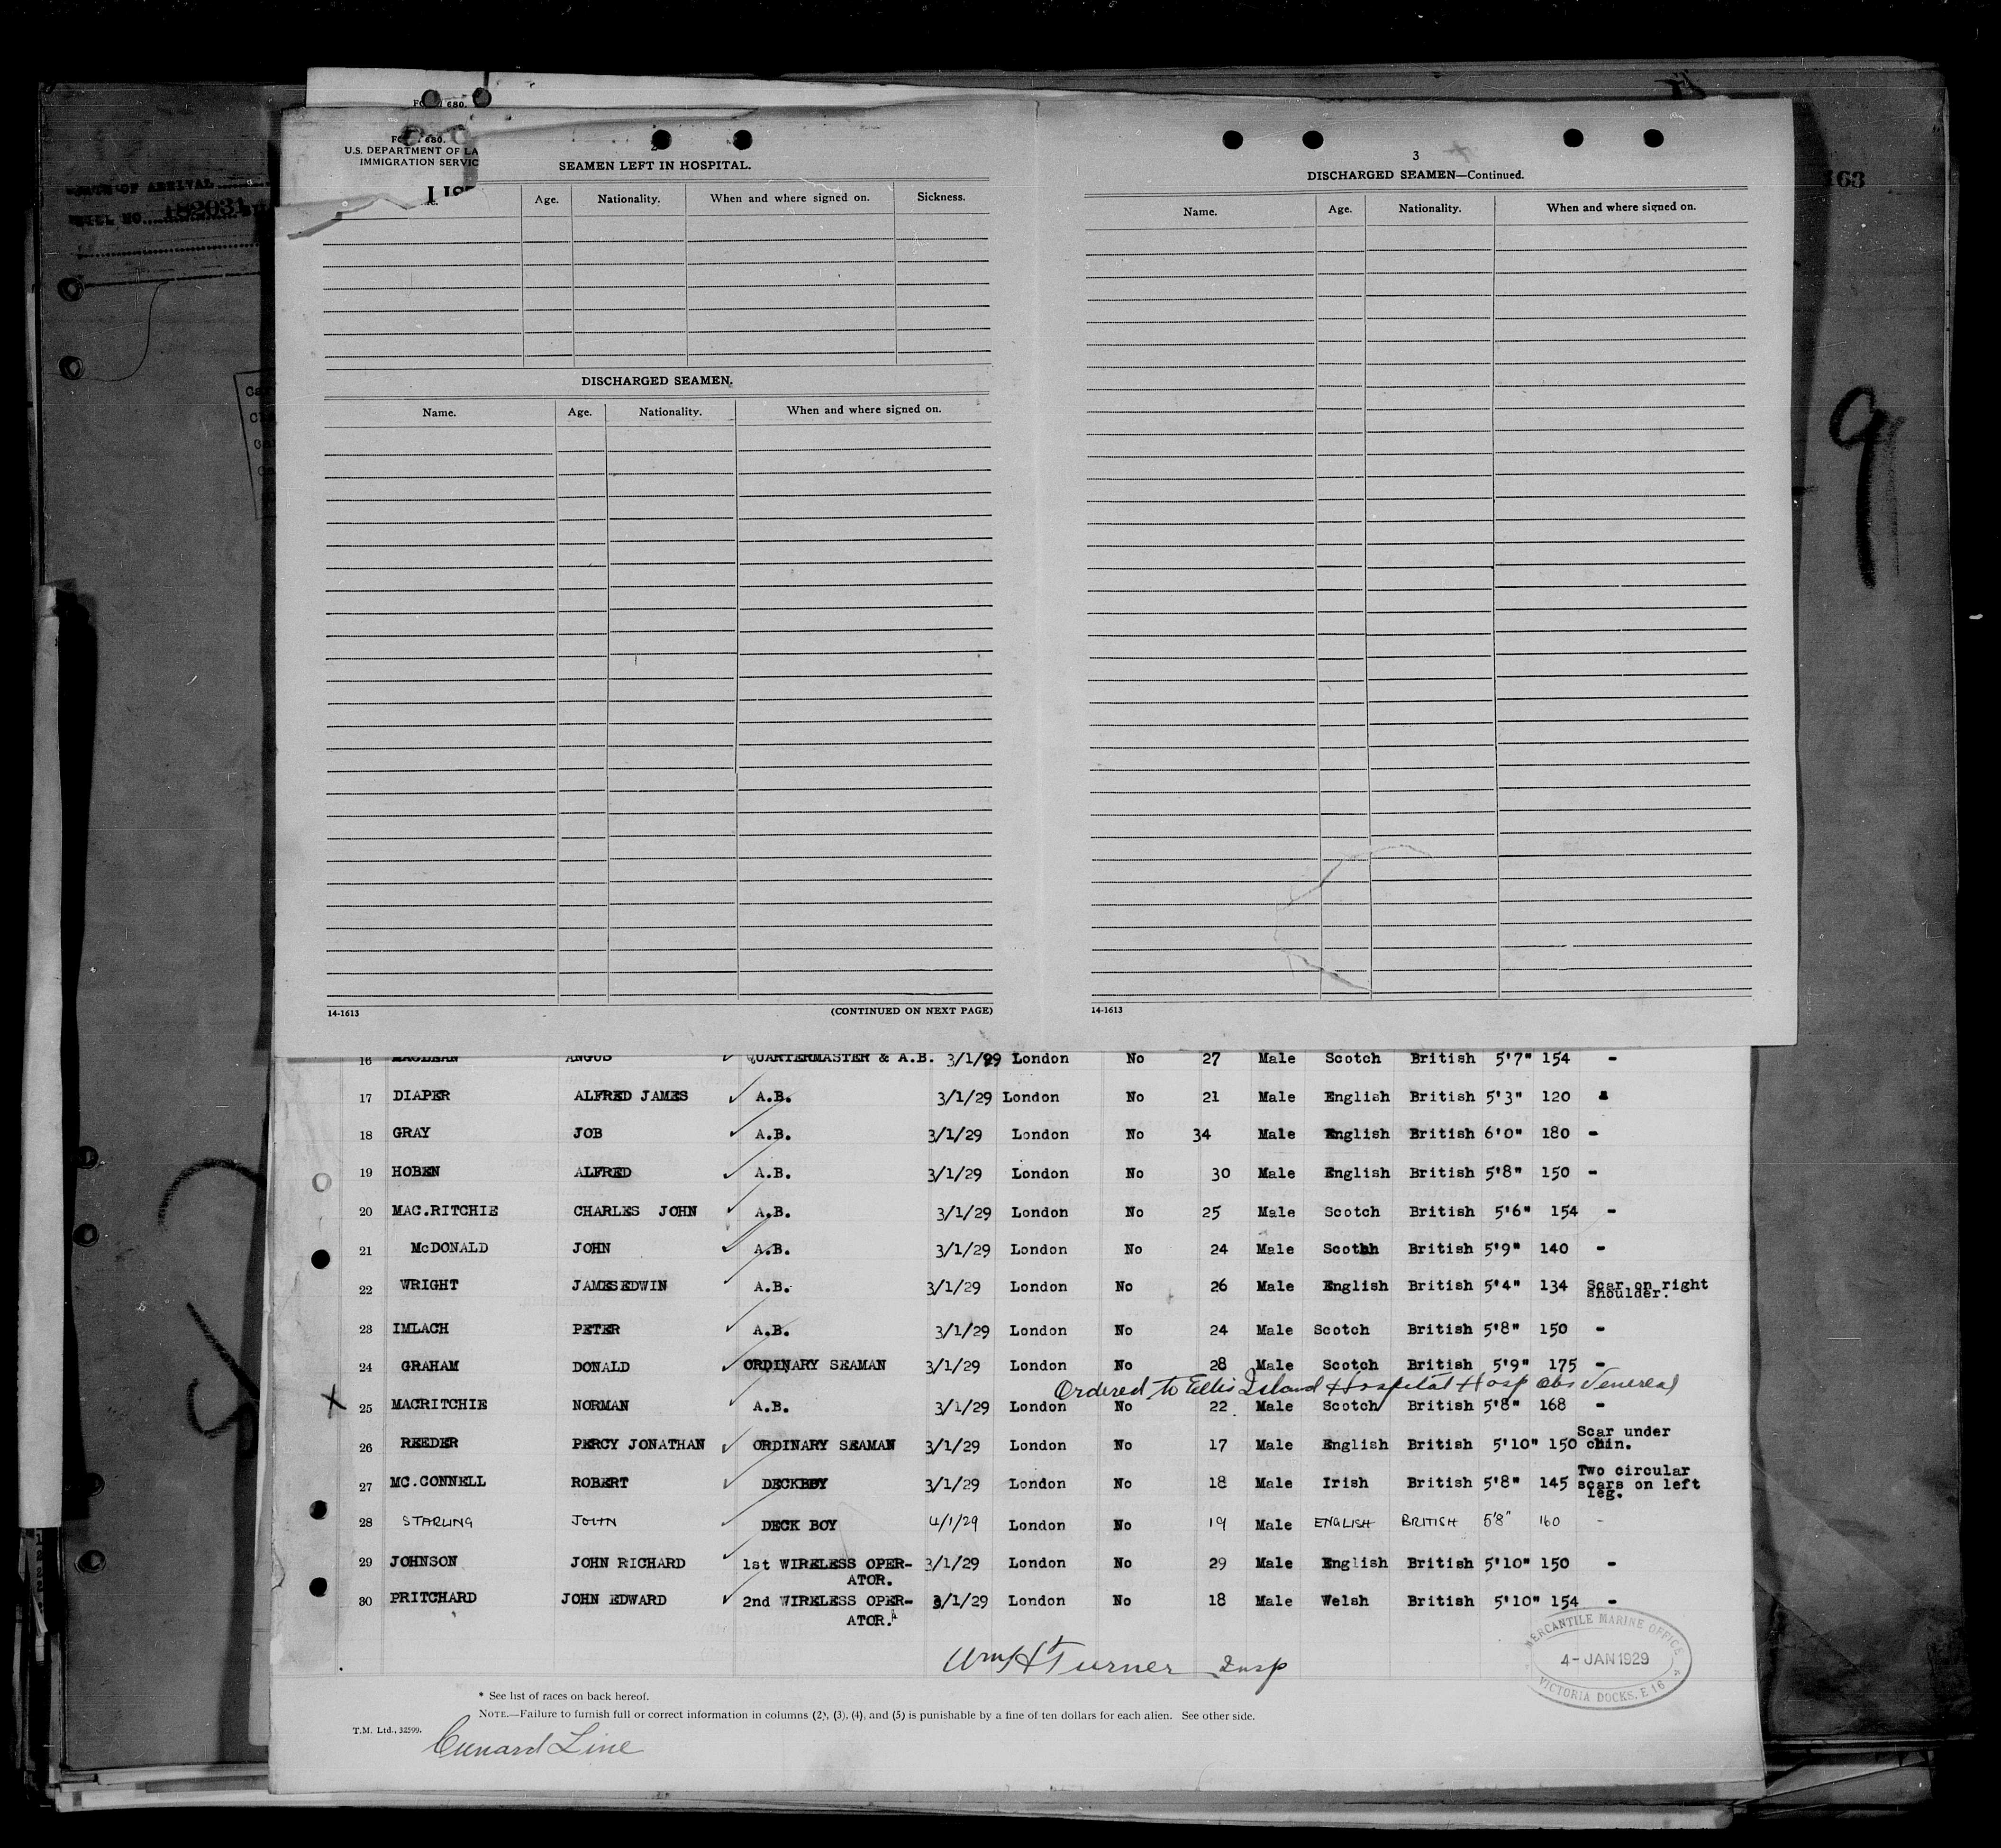 163
9
FORM 680.
U.S. DEPARTMENT OF LA
IMMIGRATION SERVIC
LIST
DATE OF ARRIVAL
BILL NO. 182031
2
SEAMEN LEFT IN HOSPITAL.
Age. Nationality. When and where signed on. Sickness.
DISCHARGED SEAMEN.
Name. Age. Nationality. When and where signed on.
14-1613 (CONTINUED ON NEXT PAGE)
3
DISCHARGED SEAMEN—Continued.
Name. Age. Nationality. When and where signed on.
14-1613
16 MACLEAN ANGUS QUARTERMASTER & A.B. 3/1/29 London No 27 Male Scotch British 5'7" 154 -
17 DIAPER ALFRED JAMES A.B. 3/1/29 London No 21 Male English British 5'3" 120 -
18 GRAY JOB A.B. 3/1/29 London No 34 Male English British 6'0" 180 -
19 HOBEN ALFRED A.B. 3/1/29 London No 30 Male English British 5'8" 150 -
20 MAC.RITCHIE CHARLES JOHN A.B. 3/1/29 London No 25 Male Scotch British 5'6" 154 -
21 McDONALD JOHN A.B. 3/1/29 London No 24 Male Scothh British 5'9" 140 -
22 WRIGHT JAMES EDWIN A.B. 3/1/29 London No 26 Male English British 5'4" 134 Scar on right
shoulder.
23 IMLACH PETER A.B. 3/1/29 London No 24 Male Scotch British 5'8" 150 -
24 GRAHAM DONALD ORDINARY SEAMAN 3/1/29 London No 28 Male Scotch British 5'9" 175 -
Ordered to Ellis Island Hospital Hosp obs Venereal
X 25 MACRITCHIE NORMAN A.B. 3/1/29 London No 22 Male Scotch British 5'8" 168 -
26 REEDER PERCY JONATHAN ORDINARY SEAMAN 3/1/29 London No 17 Male English British 5'10" 150 Scar under
chin.
27 MC.CONNELL ROBERT DECKBOY 3/1/29 London No 18 Male Irish British 5'8" 145 Two circular
scars on left
leg.
28 STARLING JOHN DECK BOY 4/1/29 London No 19 Male ENGLISH BRITISH 5'8" 160 -
29 JOHNSON JOHN RICHARD 1st WIRELESS OPER-
ATOR. 3/1/29 London No 29 Male English British 5'10" 150 -
30 PRITCHARD JOHN EDWARD 2nd WIRELESS OPER-
ATOR. 3/1/29 London No 18 Male Welsh British 5'10" 154 -
Wm H Turner Insp
MERCANTILE MARINE OFFICE
4-JAN 1929
VICTORIA DOCKS, E 16
* See list of races on back hereof.
NOTE.—Failure to furnish full or correct information in columns (2), (3), (4), and (5) is punishable by a fine of ten dollars for each alien. See other side.
T.M. Ltd., 32599.
Cunard Line